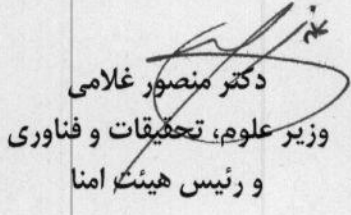 دکتر منصور غلامی
وزیر علوم، تحقیقات و فناوری
و رئیس هیئت امنا